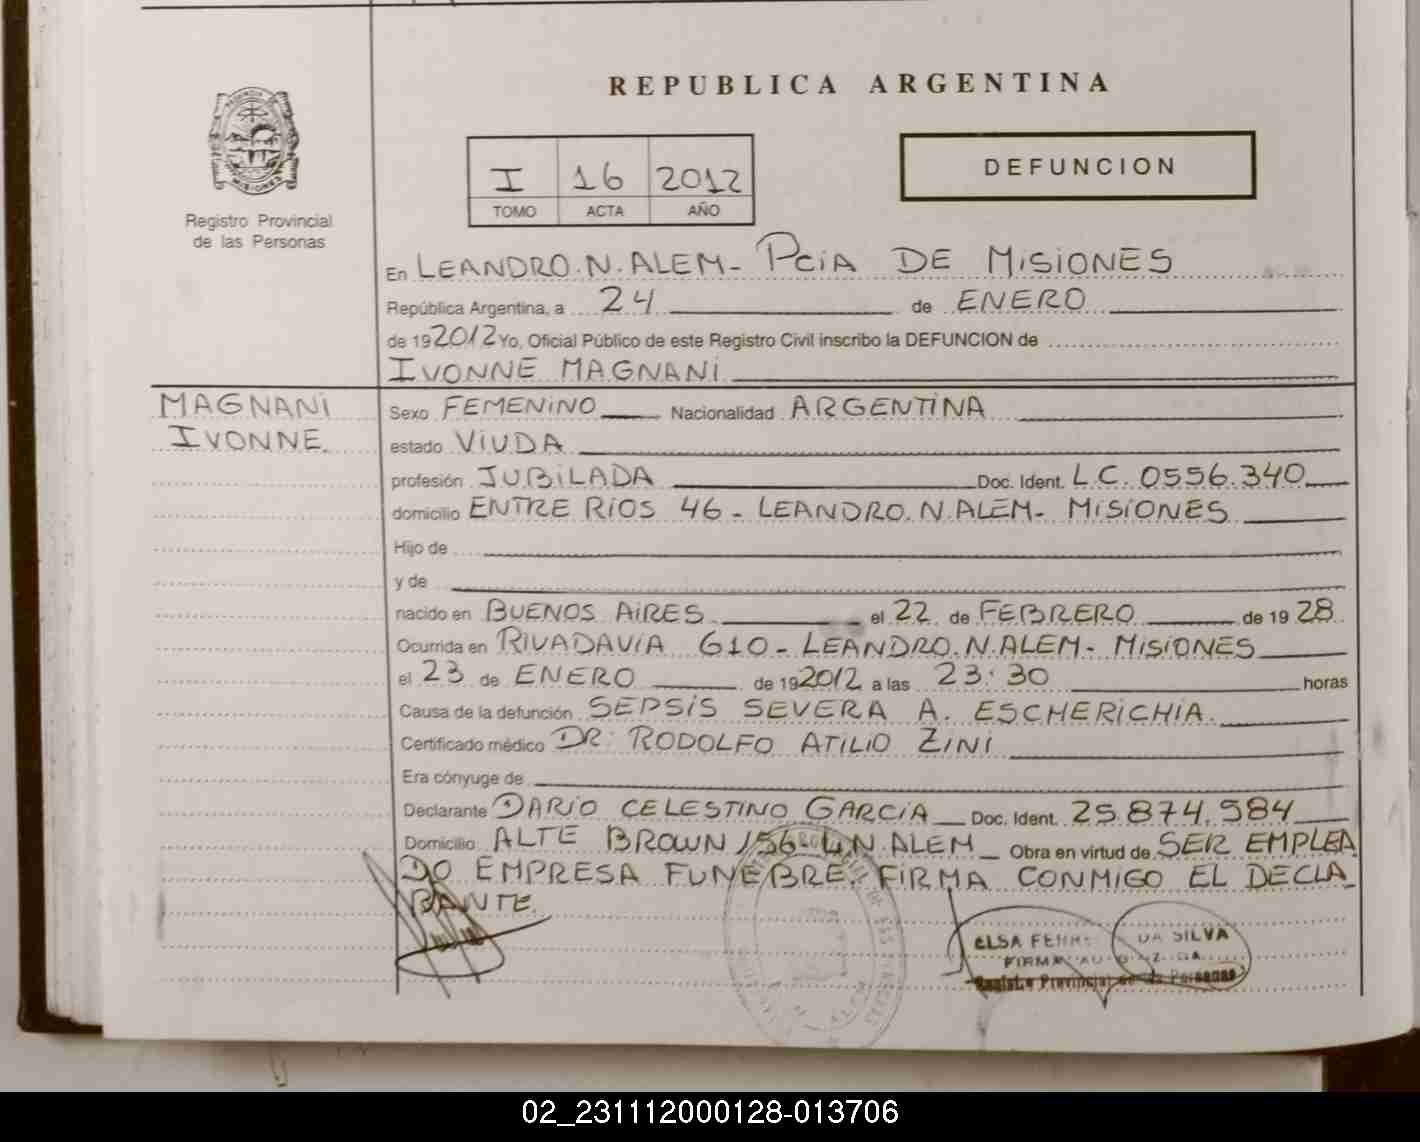 REPUBLICA ARGENTINA
I 16 2012
TOMO ACTA AÑO
DEFUNCION
Registro Provincial
de las Personas
En LEANDRO.N.ALEM- PciA DE MISIONES
República Argentina, a 24 de ENERO
de 192012 Yo, Oficial Público de este Registro Civil inscribo la DEFUNCION de
IVONNE MAGNANI
MAGNANI
IVONNE
Sexo FEMENINO Nacionalidad ARGENTINA
estado VIUDA
profesión JUBILADA Doc. Ident. L.C. 0556.340
domicilio ENTRE RIOS 46 - LEANDRO.N.ALEM- MISIONES
Hijo de
y de
nacido en BUENOS AIRES el 22 de FEBRERO de 19 28
Ocurrida en RIVADAVIA 610 - LEANDRO.N.ALEM- MISIONES
el 23 de ENERO de 192012 a las 23:30 horas
Causa de la defunción SEPSIS SEVERA A. ESCHERICHIA.
Certificado médico DR: RODOLFO ATILIO ZINI
Era cónyuge de
Declarante DARIO CELESTINO GARCIA Doc. Ident. 25.874.984
Domicilio ALTE BROWN 156 L.N.ALEM Obra en virtud de SER EMPLEA
DO EMPRESA FUNEBRE. FIRMA CONMIGO EL DECLA_
RANTE.
ELSA DA SILVA
FIRMA
Provincial de las Personas
02_231112000128-013706